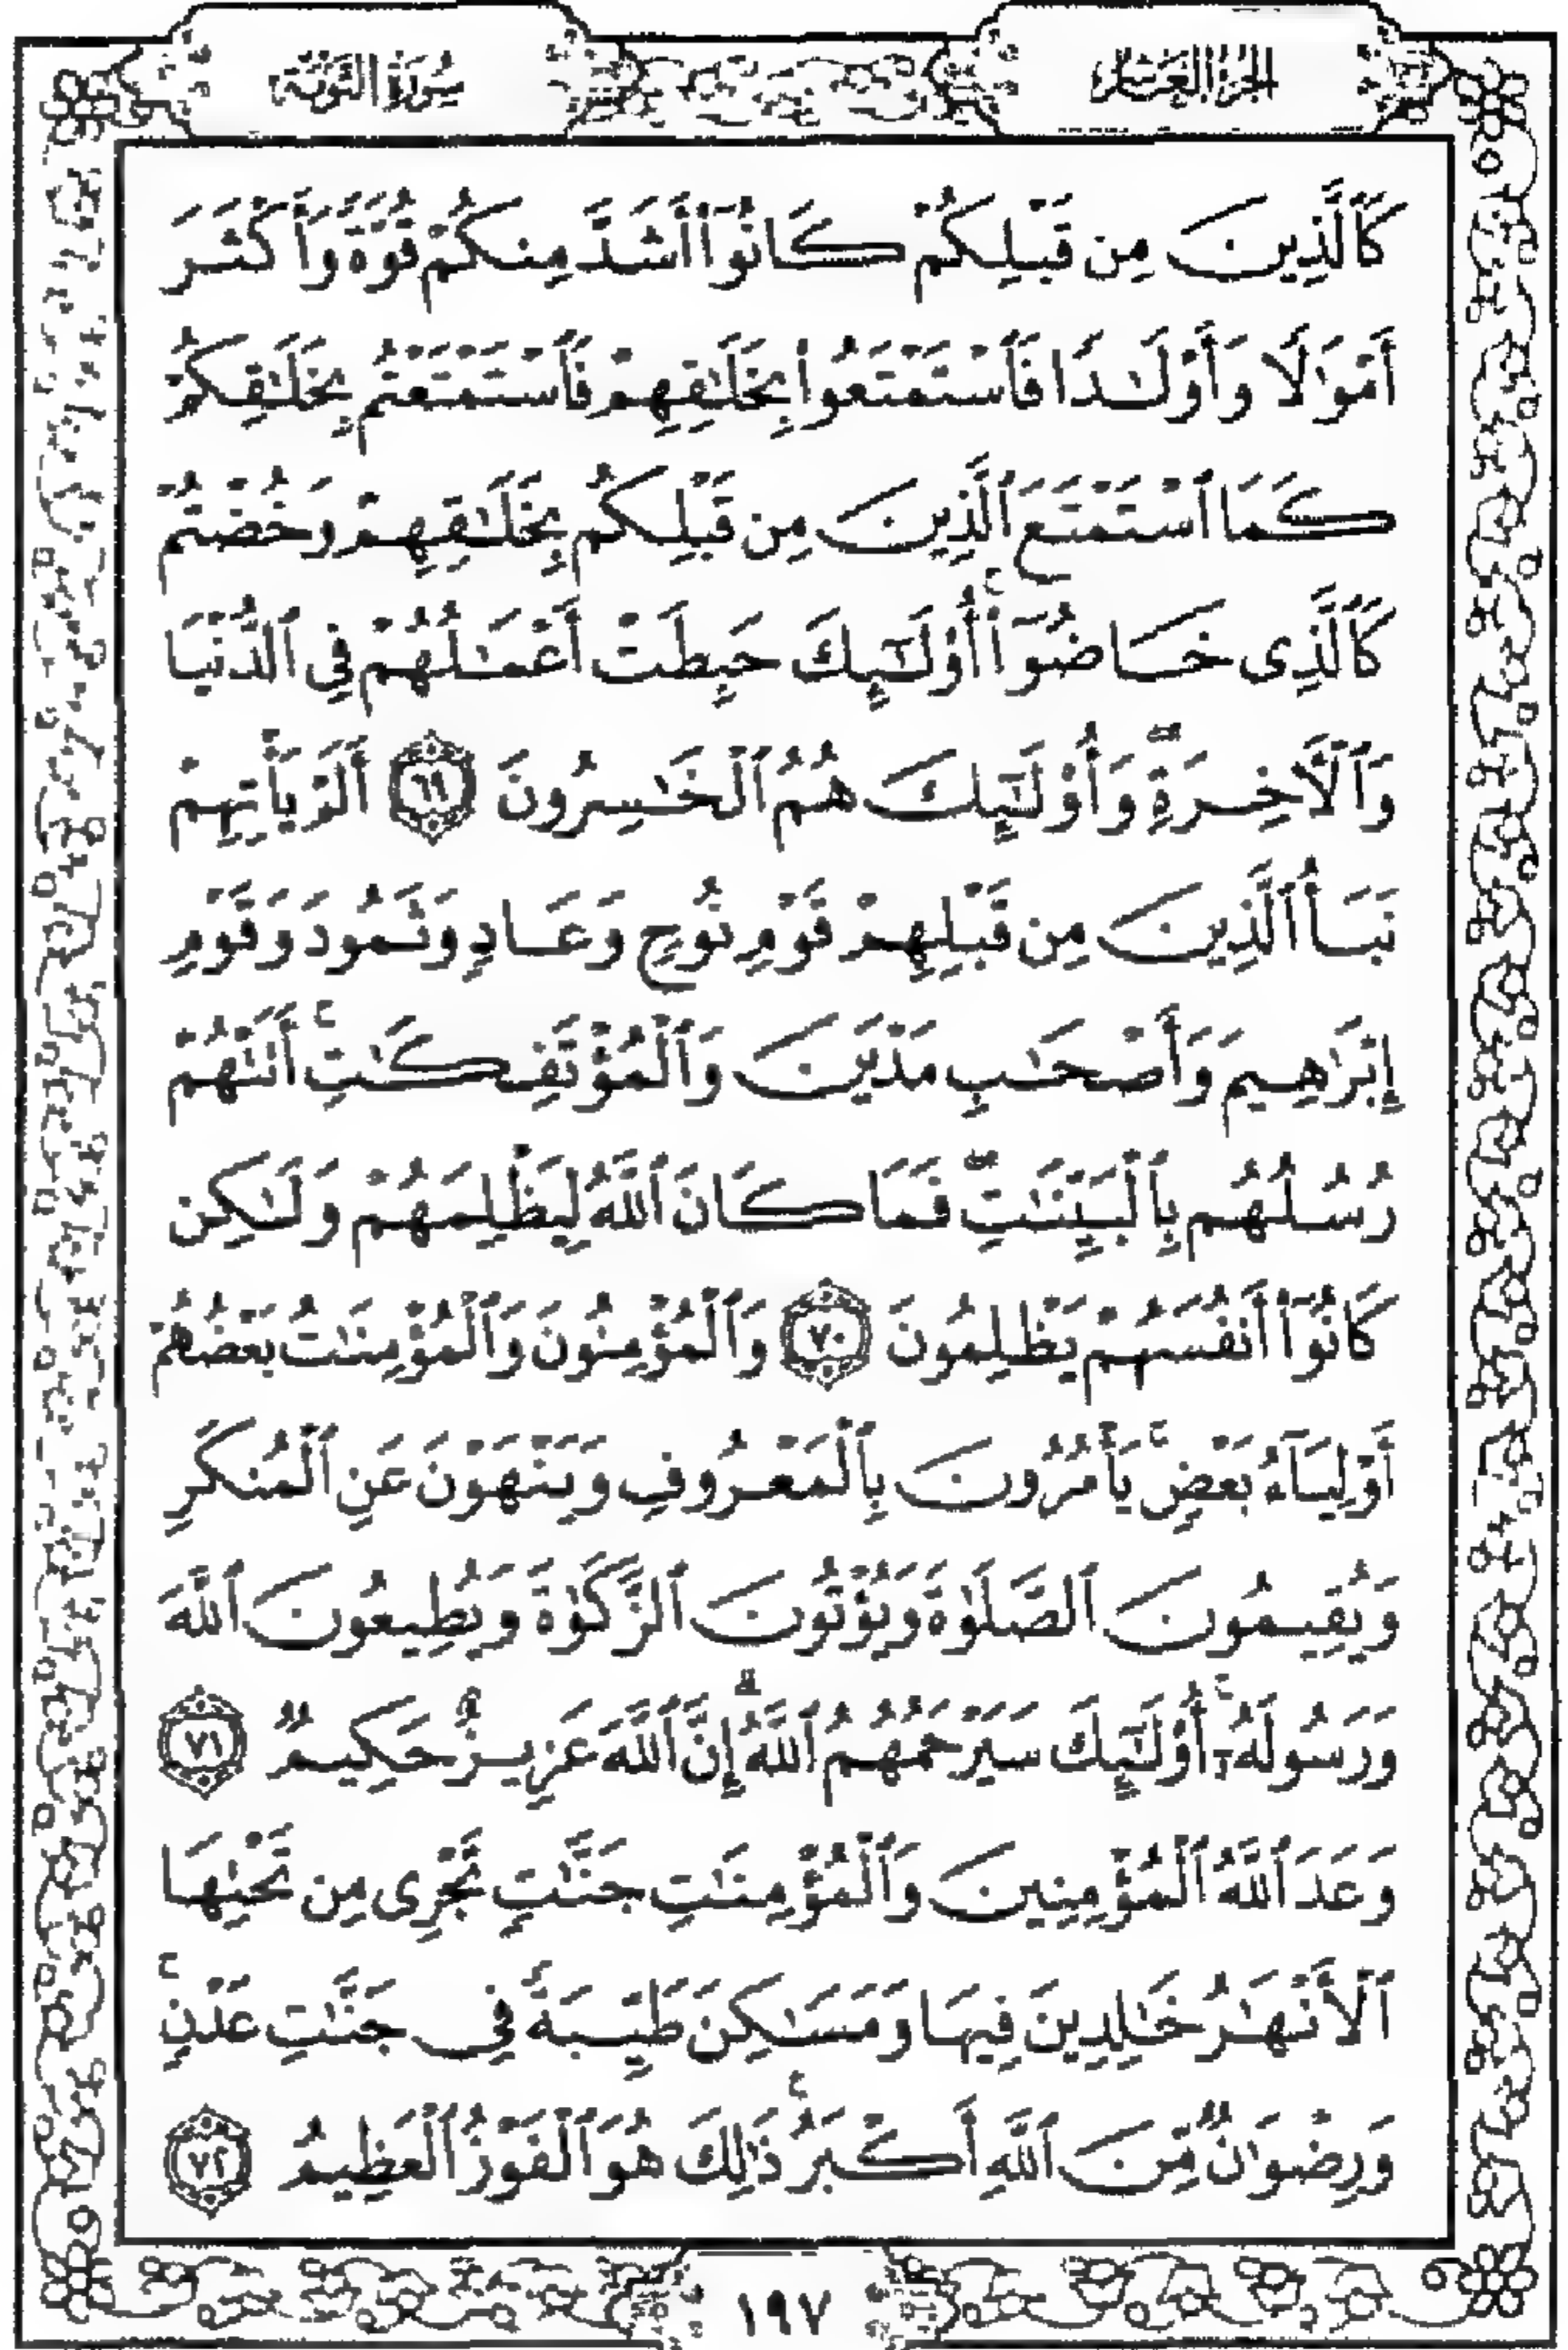 الجزء العاشر
سورة التوبة
كَٱلَّذِينَ مِن قَبْلِكُمْ كَانُوٓا۟ أَشَدَّ مِنكُمْ قُوَّةً وَأَكْثَرَ
أَمْوَٰلًا وَأَوْلَـٰدًا فَٱسْتَمْتَعُوا۟ بِخَلَـٰقِهِمْ فَٱسْتَمْتَعْتُم بِخَلَـٰقِكُمْ
كَمَا ٱسْتَمْتَعَ ٱلَّذِينَ مِن قَبْلِكُم بِخَلَـٰقِهِمْ وَخُضْتُمْ
كَٱلَّذِى خَاضُوٓا۟ ۚ أُو۟لَـٰٓئِكَ حَبِطَتْ أَعْمَـٰلُهُمْ فِى ٱلدُّنْيَا
وَٱلْـَٔاخِرَةِ ۖ وَأُو۟لَـٰٓئِكَ هُمُ ٱلْخَـٰسِرُونَ ٦٩ أَلَمْ يَأْتِهِمْ
نَبَأُ ٱلَّذِينَ مِن قَبْلِهِمْ قَوْمِ نُوحٍ وَعَادٍ وَثَمُودَ وَقَوْمِ
إِبْرَٰهِيمَ وَأَصْحَـٰبِ مَدْيَنَ وَٱلْمُؤْتَفِكَـٰتِ ۚ أَتَتْهُمْ
رُسُلُهُم بِٱلْبَيِّنَـٰتِ ۖ فَمَا كَانَ ٱللَّهُ لِيَظْلِمَهُمْ وَلَـٰكِن
كَانُوٓا۟ أَنفُسَهُمْ يَظْلِمُونَ ٧٠ وَٱلْمُؤْمِنُونَ وَٱلْمُؤْمِنَـٰتُ بَعْضُهُمْ
أَوْلِيَآءُ بَعْضٍ ۚ يَأْمُرُونَ بِٱلْمَعْرُوفِ وَيَنْهَوْنَ عَنِ ٱلْمُنكَرِ
وَيُقِيمُونَ ٱلصَّلَوٰةَ وَيُؤْتُونَ ٱلزَّكَوٰةَ وَيُطِيعُونَ ٱللَّهَ
وَرَسُولَهُۥٓ ۚ أُو۟لَـٰٓئِكَ سَيَرْحَمُهُمُ ٱللَّهُ ۗ إِنَّ ٱللَّهَ عَزِيزٌ حَكِيمٌ ٧١
وَعَدَ ٱللَّهُ ٱلْمُؤْمِنِينَ وَٱلْمُؤْمِنَـٰتِ جَنَّـٰتٍ تَجْرِى مِن تَحْتِهَا
ٱلْأَنْهَـٰرُ خَـٰلِدِينَ فِيهَا وَمَسَـٰكِنَ طَيِّبَةً فِى جَنَّـٰتِ عَدْنٍ ۚ
وَرِضْوَٰنٌ مِّنَ ٱللَّهِ أَكْبَرُ ۚ ذَٰلِكَ هُوَ ٱلْفَوْزُ ٱلْعَظِيمُ ٧٢
١٩٧